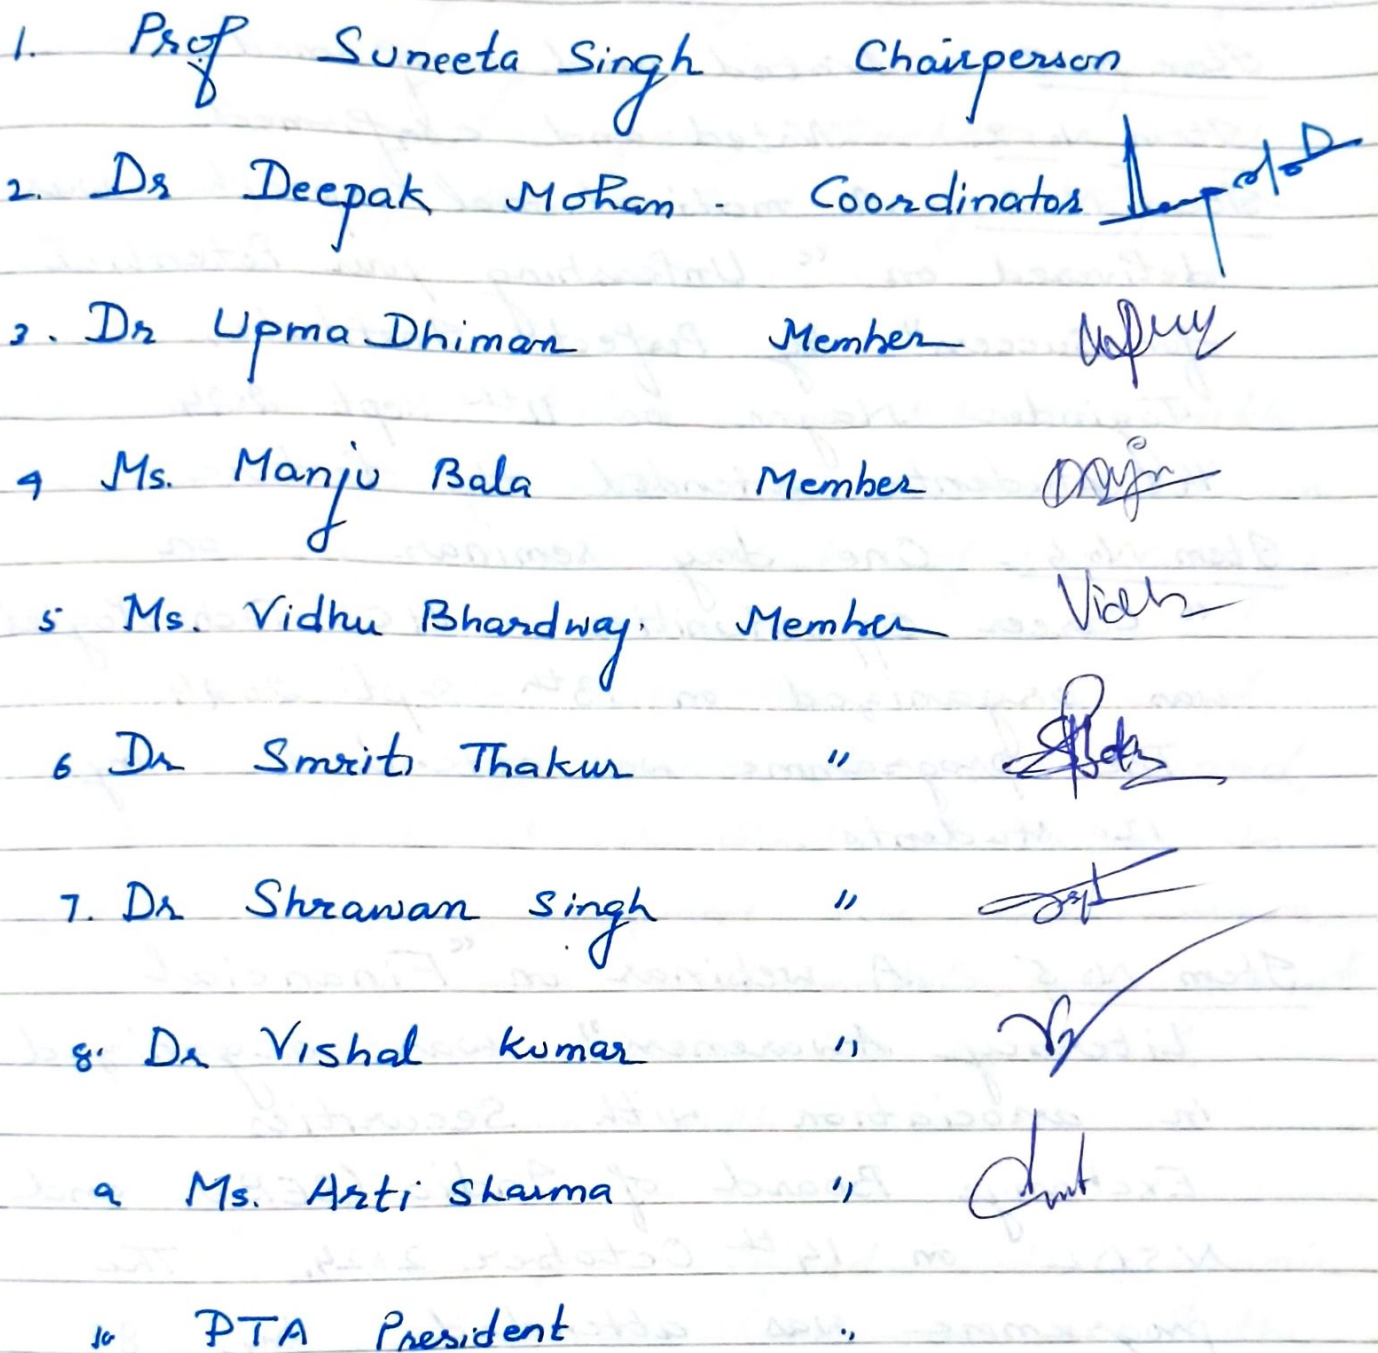 1. Prof Suneeta Singh Chairperson
2. Dr Deepak Mohan - Coordinator
3. Dr Upma Dhiman Member
4 Ms. Manju Bala Member
5 Ms. Vidhu Bhardwaj. Member Vidhu
6 Dr Smriti Thakur "
7. Dr Shrawan Singh "
8. Dr Vishal Kumar "
9 Ms. Arti Sharma "
10 PTA President "